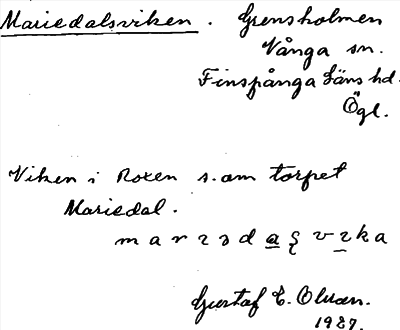 Mariedalsviken. Grensholmen
Vånga sn.
Finspånga Läns hd.
Ögl.
Viken i Roxen s. om torpet
Mariedal.
Gustaf E. Olsson.
1927.